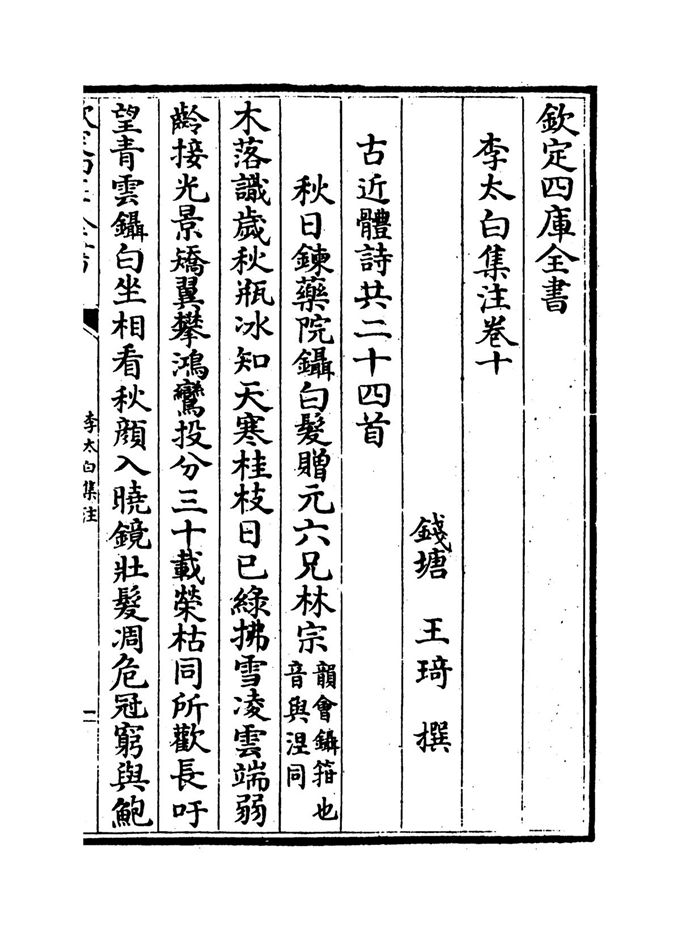 欽定四庫全書
李太白集注卷十
錢塘　王琦　撰
古近體詩共二十四首
秋日鍊藥院鑷白髮贈元六兄林宗韻會鑷箝也
音與涅同
木落識歲秋瓶冰知天寒桂枝日已綠拂雪凌雲端弱
齡接光景矯翼攀鴻鸞投分三十載榮枯同所歡長吁
望青雲鑷白坐相看秋顔入曉鏡壯髮凋危冠窮與鮑
李太白集注